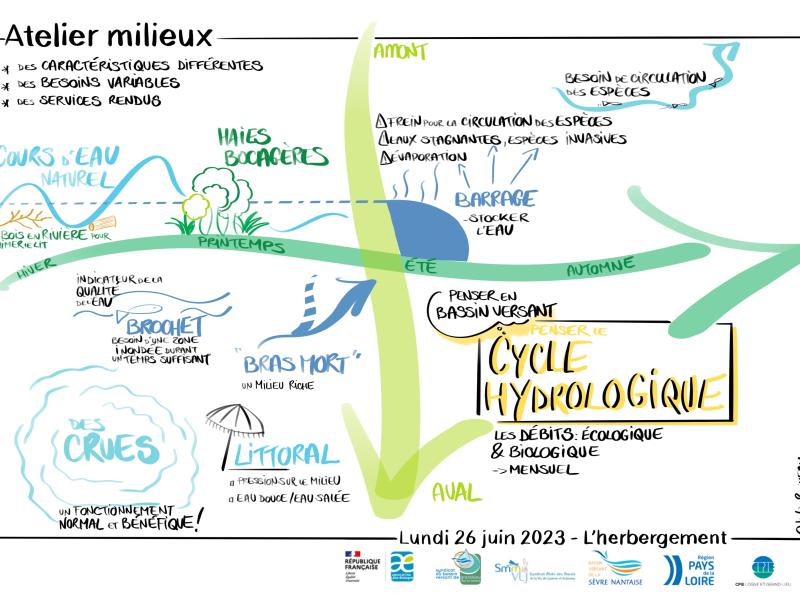 Atelier milieux
* DES CARACTÉRISTIQUES DIFFÉRENTES
* DES BESOINS VARIABLES
* DES SERVICES RENDUS
AMONT
BESOIN DE CIRCULATION
DES ESPÈCES
FREIN POUR LA CIRCULATION DES ESPÈCES
EAUX STAGNANTES, ESPÈCES INVASIVES
ÉVAPORATION
COURS D'EAU
NATUREL
HAIES
BOCAGÈRES
BARRAGE
- STOCKER
L'EAU
BOIS EN RIVIÈRE POUR
LIT
HIVER
PRINTEMPS
ÉTÉ
AUTOMNE
INDICATEUR DE LA
QUALITÉ
DE L'EAU
BROCHET
BESOIN D'UNE ZONE
INONDÉE DURANT
UN TEMPS SUFFISANT
"BRAS MORT"
UN MILIEU RICHE
PENSER EN
BASSIN VERSANT
PENSER LE
CYCLE
HYDROLOGIQUE
LES DÉBITS: ÉCOLOGIQUE
& BIOLOGIQUE
-> MENSUEL
DES
CRUES
UN FONCTIONNEMENT
NORMAL ET BÉNÉFIQUE!
LITTORAL
PRESSION SUR LE MILIEU
EAU DOUCE/EAU SALÉE
AVAL
Lundi 26 juin 2023 - L'herbergement
RÉPUBLIQUE
FRANÇAISE
Liberté
Égalité
Fraternité
SÈVRE NANTAISE
Région
PAYS
de la
LOIRE
CPIE LOGNE ET GRAND LIEU